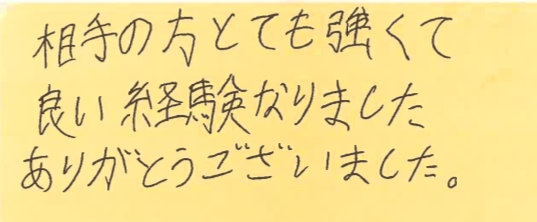 相手の方とても強くて
良い経験なりました
ありがとうございました。